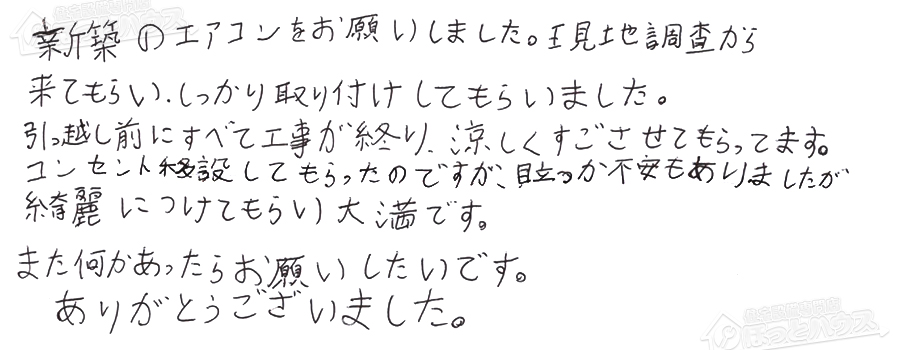 新築のエアコンをお願いしました。現地調査から
来てもらい、しっかり取り付けしてもらいました。
引っ越し前にすべて工事が終り、涼しくすごさせてもらってます。
コンセント移設してもらったのですが、目立つか不安もありましたが
綺麗につけてもらい大満です。
また何かあったらお願いしたいです。
ありがとうございました。
ほっとハウス